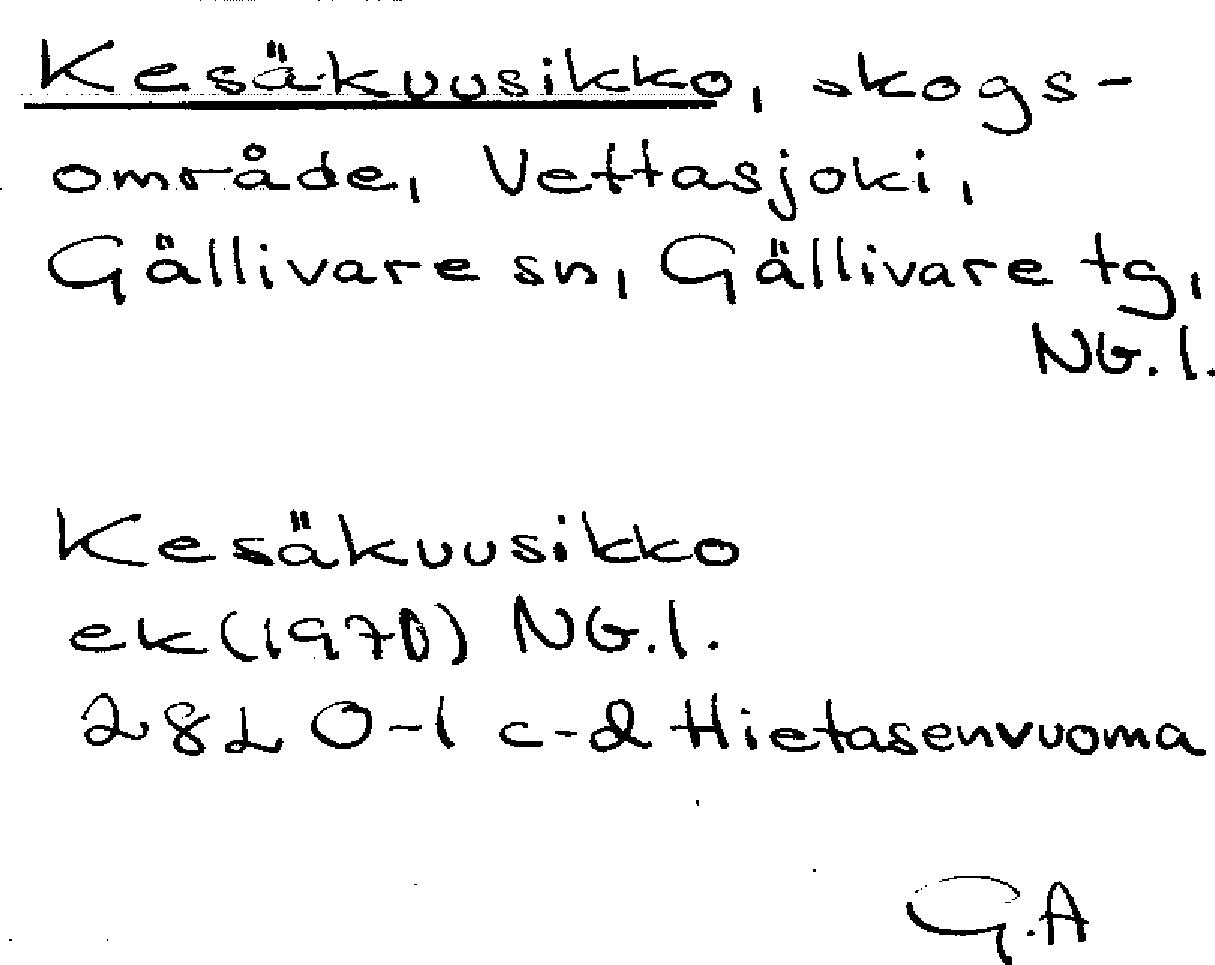 Kesäkuusikko, skogs-
område, Vettasjoki,
Gällivare sn, Gällivare tg,
NG.l.
Kesäkuusikko
ek(1970) NG.l.
28L 0-1 c-d Hietasenvuoma
G.A